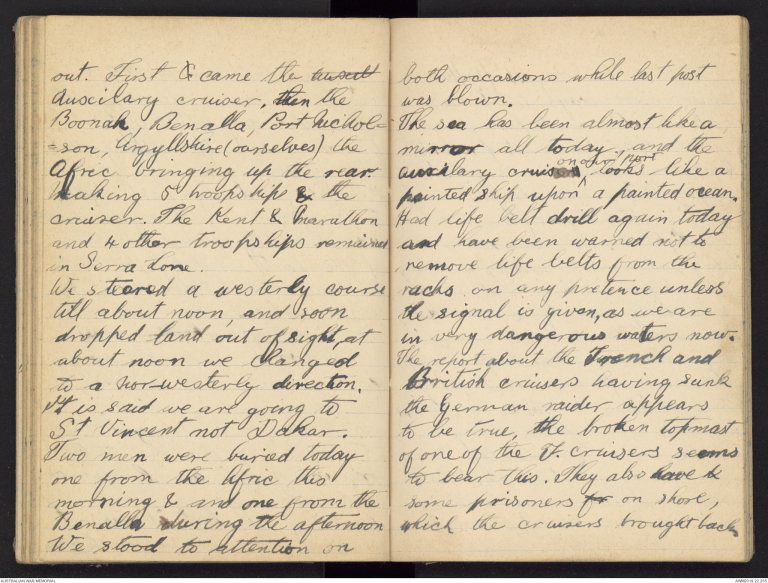 out. First & came the auxil
Auxcilary cruiser, then the
Boonah, Benalla, Port Nichol=
=son, Argyllshire (ourselves) the
Afric bringing up the rear.
Making 5 troopships & the
cruiser. The Kent & Marathon
and 4 other troopships remained
in Serra Lone.
We steered a westerly course
till about noon, and soon
dropped land out of sight, at
about noon we changed
to a nor-westerly direction.
It is said we are going to
St Vincent not Dakar.
Two men were buried today
one from the Afric this
morning & and one from the
Benalla during the afternoon
We stood to attention on
both occasions while last post
was blown.
The sea has been almost like a
mirror all today, and the
auxilary cruiser on our port looks like a
painted ship upon a painted ocean.
Had life belt drill again today
and have been warned not to
remove life belts from the
racks on any pretence unless
the signal is given, as we are
in very dangerous waters now.
The report about the French and
British cruisers having sunk
the German raider appears
to be true, the broken topmast
of one of the F. cruisers seems
to bear this. They also have
some prisoners on shore,
which the cruisers brought back
AUSTRALIAN WAR MEMORIAL